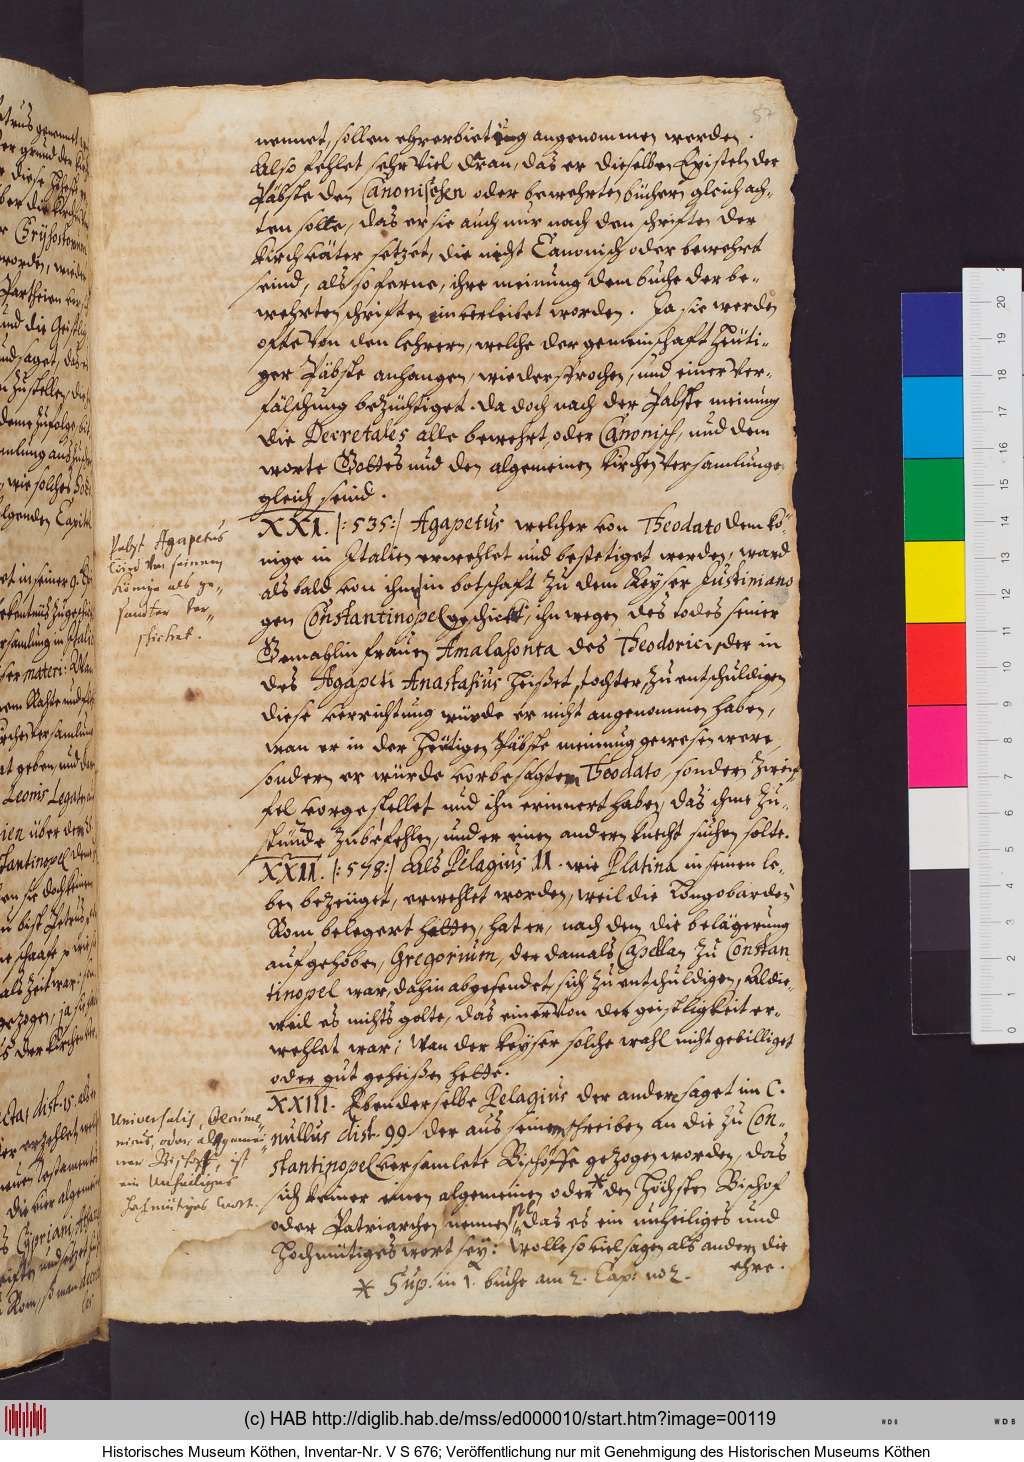 57
nennet, sollen ehrerbietung angenommen werden.
Also fehlet sehr viel dran, das er dieselben Episteln der
Päbste den Canonischen oder bewehrten büchern gleich ach-
ten solte, das er sie auch nur nach den schriften der
kirchväter setzet, die nicht Canonisch oder bewehret
seind, als so ferne, ihre meinung dem buche der be-
wehrten schriften einverleibet worden. Ja sie werden
ofte von den lehrern, welche der gemeinschaft heüti-
ger Päbste anhangen, wiedersprochen, und einer ver-
fälschung bezüchtiget. da doch nach der Päbste meinung
die Decretales alle bewehrt, oder Canonisch, und dem
worte Gottes und den algemeinen kirchen versamlungen
gleich seind.
XXI. |:535:| Agapetus welcher von Theodato dem kö-
nige in Italien erwehlet und bestetiget worden, ward
als bald von ihm in botschaft zu dem Keyser Justiniano
gen Constantinopel geschickt, ihn wegen des todes seiner
Gemahlin frauen Amalasonta des Theodorici, der in
des Agapeti Anastasius heißet, tochter, zu entschuldigen
diese verrichtung würde er nicht angenommen haben,
wan er in der heütigen Päbste meinung gewesen were,
sondern er würde vorbesagtem Theodato, sonder zwei-
fel vorgestellet und ihn erinnert haben, das ihme zu-
stünde zubefehlen, und er einen andern knecht suchen solte.
XXII. |:578:| Als Pelagius II. wie Platina in seinen le-
ben bezeüget, erwehlet worden, weil die Longobarden
Rom belegert hatten, hat er, nach dem die belägerung
aufgehoben, Gregorium, der damals Capellan zu Constan
tinopel war, dahin abgesendet, sich zu entschuldigen, Aldie-
weil es nichts golte, das einer von der geistligkeit er-
wehlet war; wan der keyser solche wahl nicht gebilliget
oder gut geheißen hette.
XXIII. Eben derselbe Pelagius der ander saget im C.
nullus dist. 99. der aus seinem schreiben an die zu Con-
stantinopel versamlete Bischöffe gezogen worden, das
sich keiner einen algemeinen oder * den höchsten Bischof
oder Patriarchen nennen sol, das es ein unheiliges und
hochmütiges wort sey: Wolle so viel sagen als andern die
ehre.
* Sup. in 1. buche am 2. Cap: no 2.
Pabst Agapetus
wird von seinem
Könige als ge-
santer ver-
schicket.
Universalis, Oecume-
nicus, oder algemei-
ner Bischoff, ist
ein Unheiliges
hochmütiges wort.
(c) HAB http://diglib.hab.de/mss/ed000010/start.htm?image=00119
Historisches Museum Köthen, Inventar-Nr. V S 676; Veröffentlichung nur mit Genehmigung des Historischen Museums Köthen